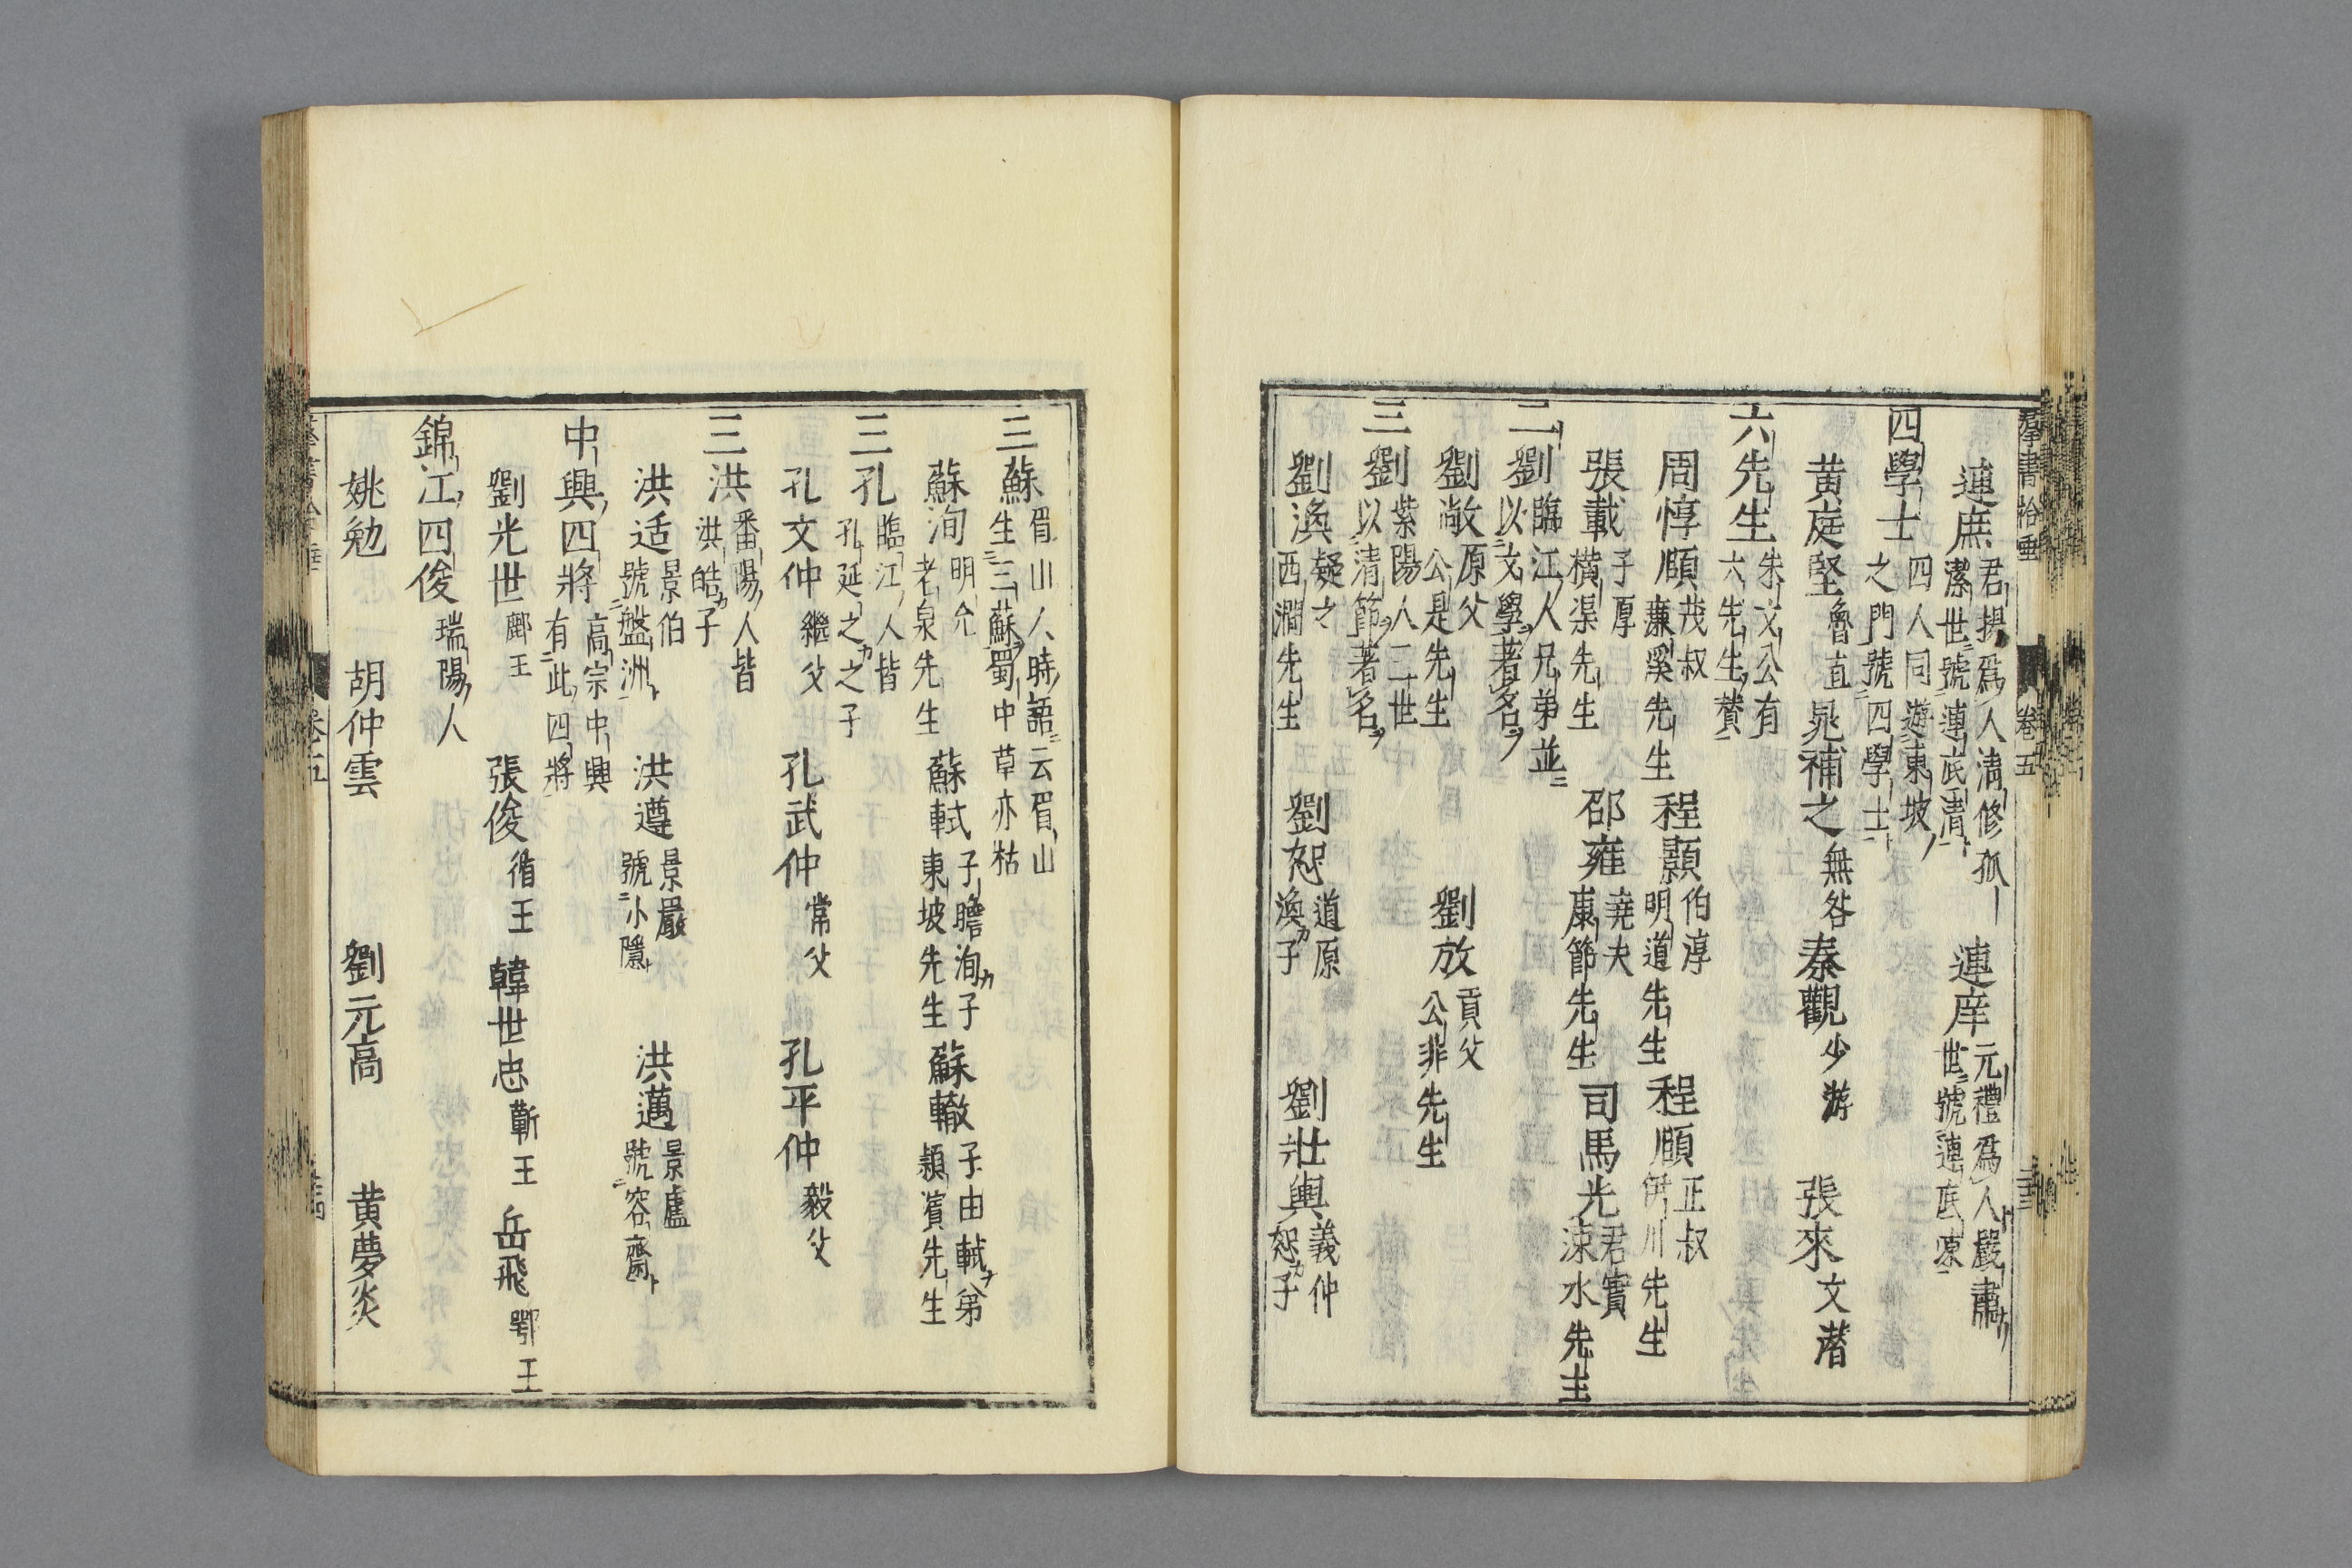 連庶 君揚爲人清修孤｜
潔世號連底清 連庠 元禮爲人嚴肅
世號連底凍
四學士 四人同遊東坡
之門號四學士
黄庭堅 魯直 晁補之 無咎 秦觀 少游 張來 文潛
六先生 朱文公有
六先生賛
周惇頤 茂叔
濂溪先生 程顥 伯淳
明道先生 程頤 正叔
伊川先生
張載 子厚
横渠先生 邵雍 堯夫
康節先生 司馬光 君實
涑水先生
二劉 臨江人兄弟並
以文學著名
劉敞 原父
公是先生 劉放 貢父
公非先生
三劉 紫陽人三世
以清節著名
劉渙 凝之
西澗先生 劉恕 道原
渙子 劉壯輿 義仲
恕子
三蘇 眉山人時語云眉山
生三蘇蜀中草亦枯
蘇洵 明允
老泉先生 蘇軾 子瞻洵子
東坡先生 蘇轍 子由軾弟
潁濱先生
三孔 臨江人皆
孔延之之子
孔文仲 繼父 孔武仲 常父 孔平仲 毅父
三洪 番陽人皆
洪皓子
洪适 景伯
號盤洲 洪遵 景嚴
號小隱 洪邁 景盧
號容齋
中興四將 高宗中興
有此四將
劉光世 鄜王 張俊 循王 韓世忠 蘄王 岳飛 鄂王
錦江四俊 瑞陽人
姚勉 胡仲雲 劉元高 黄夢炎
羣書拾唾 卷五